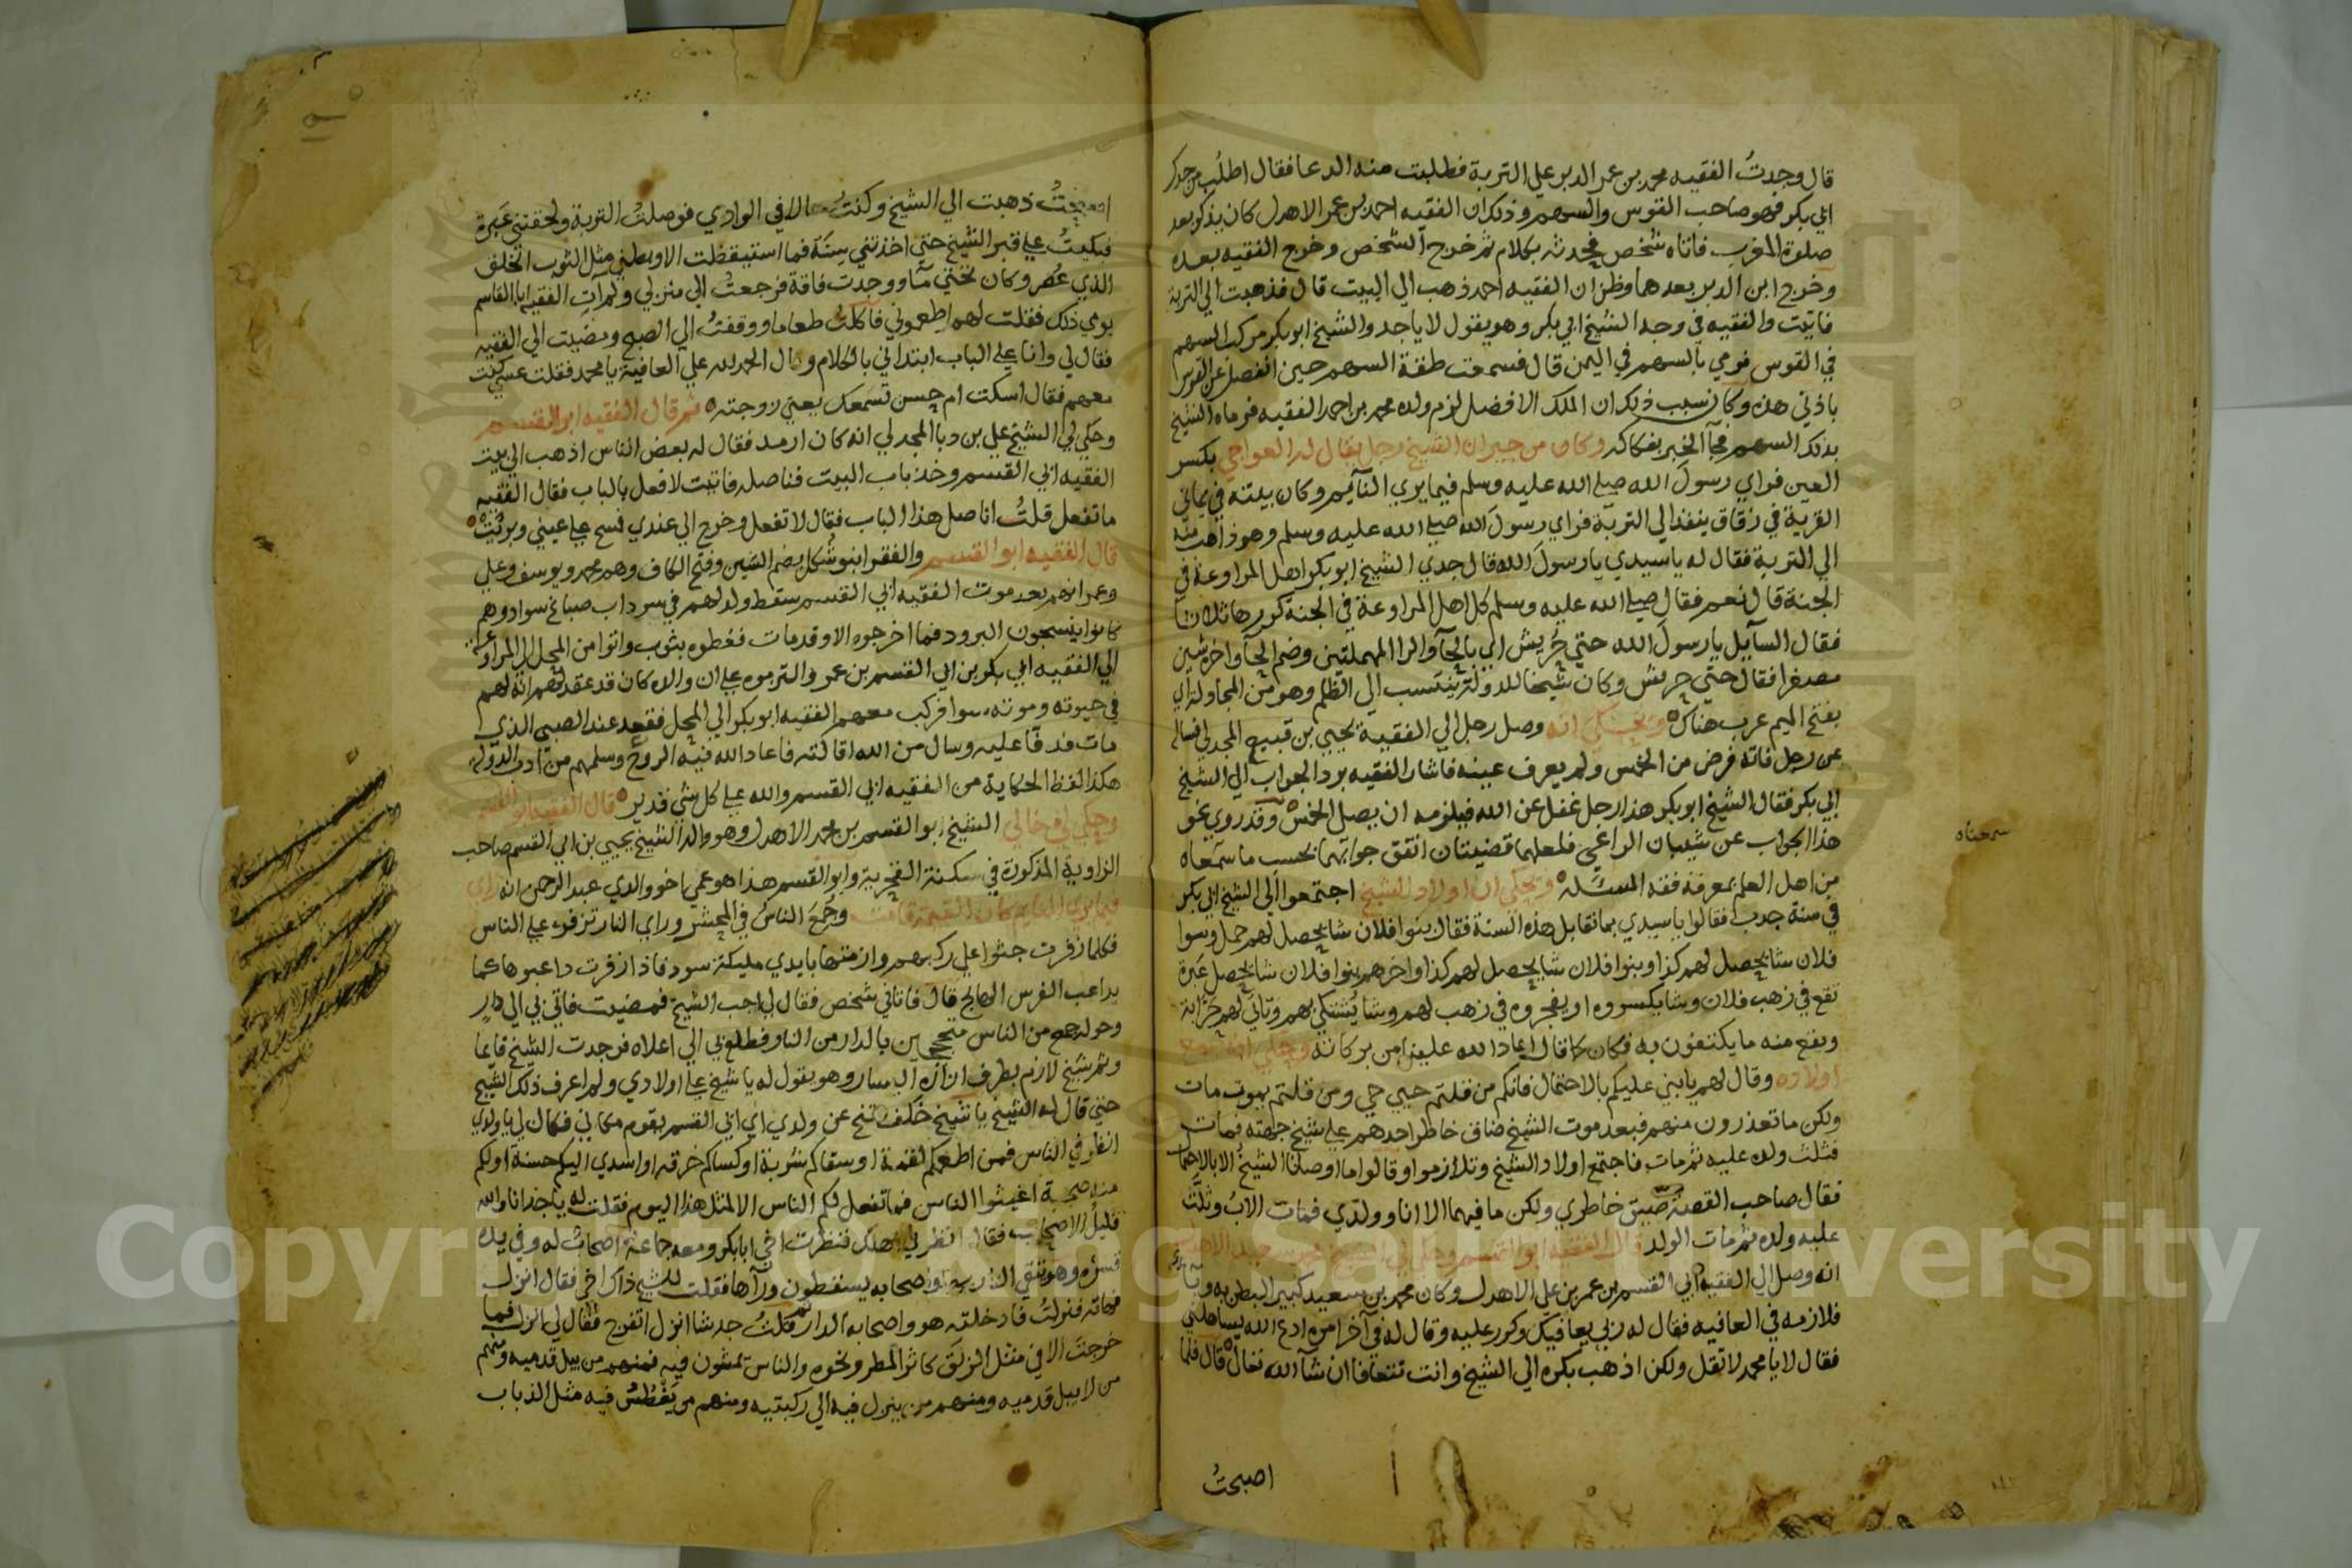 قال وجدتُ الفقيه محمد بن عمر الدبر علي التربة فطلبت منه الدعا فقال اطلُب من جدك
ابي بكر فهو صاحب القوس والسهم وذكر ان الفقيه احمد بن عمر الاهدل كان يذكر بعد
صلوة المغرب فاتاه شخص فحدثه بكلام ثم خرج الشخص وخرج الفقيه بعده
وخرج ابن الدبر بعدهما وظن ان الفقيه احمد ذهب الي البيت قال فذهبت الي التربة
فاتيت والفقيه في وجه الشيخ ابي بكر وهو يقول لا يا جد والشيخ ابو بكر مركب السهم
في القوس فرمي بالسهم في اليمن قال فسمعت طفة السهم حين انفصل عن القوس
باذني هذه وكان سبب ذلك ان الملك الافضل لزم ولده محمد بن احمد الفقيه فرماه الشيخ
بذلك السهم فجآ الخبر بفكاكه وكان من جيران الشيخ رجل يقال له العواجي بكسر
العين فراي رسولَ الله صلي الله عليه وسلم فيما يري النآيم وكان بيته في يماني
القرية في زقاق ينفذ الي التربة فراي رسولَ الله صلي الله عليه وسلم وهو ذاهب منه
الي التربة فقال له يا سيدي يا رسولَ الله قال جدي الشيخ ابو بكر اهل المراوعة في
الجنة قال نعم فقال صلي الله عليه وسلم كل اهل المراوعة في الجنة كررها ثلاثا
فقال السآيل يا رسولَ الله حتي حُريش اي بالحآ والرا المهملتين وضم الحآ واخره شين
مصغرا فقال حتي حريش وكان شيخا للدولة ينتسب الي الظلم وهو من المجاولة اي
بفتح الميم عرب هناك ويحكي انه وصل رجل الي الفقيه يحيي بن قبيع المجدلي فساله
عن رجل فاته فرض من الخمس ولم يعرف عينه فاشار الفقيه برد الجواب الي الشيخ
ابي بكر فقال الشيخ ابو بكر هذا رجل غفل عن الله فيلزمه ان يصل الخمس وقد روي نحو
هذا الجواب عن شيبان الراعي فلعلهما قضيتان اتفق جوابهما بحسب ما سمعاه
من اهل العلم بمعرفة فقه المسئلة ويحكي ان اولاد الشيخ اجتمعوا الي الشيخ ابي بكر
في سنة جدب فقالوا يا سيدي بما تقابل هذه السنة فقال بنوا فلان شا يحصل لهم حمل وبنوا
فلان شا يحصل لهم كذا وبنوا فلان شا يحصل لهم كذا واخرهم بنوا فلان شا يحصل عَبرة
تقع في زهب فلان وشا يكسروه او يفجروه في زهب لهم وشا يُشتكي بهم وتاتي لهم خزانة
ويقع منه ما يكتفون به فكان كما قال اعاد الله علينا من بركاته وحكي انه جمع
اولاده وقال لهم يا بني عليكم بالاحتمال فانكم من قلتم حيي حي ومن قلتم يموت مات
ولكن ما تعذرون منهم فبعد موت الشيخ ضاق خاطر احدهم علي شيخ جهته فمات
فثلث ولده عليه ثم مات فاجتمع اولاد الشيخ وتلازموا وقالوا ما اوصانا الشيخ الا بالاحتمال
فقال صاحب القصة ضيق خاطري ولكن ما فيهما الا انا وولدي فمات الابُ وثلَّث
عليه ولده ثم مات الولد قال الفقيه ابو القسم وحكي لي الشيخ محمد بن سعيد الاهدل
انه وصل الي الفقيه ابي القسم بن عمر بن علي الاهدل وكان محمد بن سعيد كبير البطن به
فلازمه في العافيه فقال له ربي يعافيك وكرر عليه وقال له في آخر امره ادع الله
فقال لا يا محمد لا تقل ولكن اذهب بكره الي الشيخ وانت تتعافا ان شآ الله تعالي قال فلما
اصبحتُ
سمعناه
اصبحتُ ذهبت الي الشيخ وكنتُ حالا في الوادي فوصلتُ التربة ولحقتني عَبرة
فبكيتُ علي قبر الشيخ حتي اخذتني سِنَة فما استيقظت الا وبطني مثل الثوب الخلق
الذي عُصر وكان تحتي مآ ووجدت فاقة فرجعتُ الي منزلي ولم آتِ الفقيه ابا القاسم
يومي ذلك فقلت لهم اطعموني فاكلتُ طعاما ووقفتُ الي الصبح ومضيت الي الفقيه
فقال لي وانا علي الباب ابتداني بالكلام وقال الحمد لله علي العافية يا محمد فقلت عسي كنت
معهم فقال اسكت ام حسن تسمعك يعني زوجته ثم قال الفقيه ابو القسم
وحكي لي الشيخ علي بن دبا المجدلي انه كان ارمد فقال له بعض الناس اذهب الي بيت
الفقيه ابي القسم وخذ باب البيت فناصله فاتيت لافعل بالباب فقال الفقيه
ما تفعل قلتُ اناصل هذا الباب فقال لا تفعل وخرج الي عندي فمسح علي عيني وبرئتُ
قال الفقيه ابو القسم والفقرا بنو شُكل بضم الشين وفتح الكاف وهم محمد ويوسف وعلي
وعمر انهم بعد موت الفقيه ابي القسم سقط ولد لهم في سرداب صباغ سواد وهم
كانوا ينسجون البرود فما اخرجوه الا وقد مات فغطوه بثوب واتوا من المحل الي المراوعة
الي الفقيه ابي بكر بن ابي القسم بن عمر والتزموه علي ان والده كان قد عقد لهم انه لهم
في حيوته وموته سوا فركب معهم الفقيه ابو بكر الي المحل فقعد عند الصبي الذي
مات فدعا عليه وسال من الله اقالته فاعاد الله فيه الروح وسلمهم من ادب الدولة
هكذا لفظ الحكاية من الفقيه ابي القسم والله علي كل شي قدير قال الفقيه ابو القسم
وحكي لي خالي الشيخ ابو القسم بن محمد الاهدل وهو والد الشيخ يحيي بن ابي القسم صاحب
الزاوية المذكورة في سكنة الفخرية وابو القسم هذا هو عمي اخو والدي عبد الرحمن انه راي
فيما يري النايم كان القيمة قامت وجُمع الناسُ في المحشر وراي النار تزفر علي الناس
فكلما زفرت جثوا علي ركبهم وازمتها بايدي مليكة سود فاذا زفرت داعبوها كما
يداعب الفرس الهايج قال فاتاني شخص فقال لي اجب الشيخ فمضيت فاتي بي الي دارٍ
وحولها جمع من الناس متحججين بالدار من النار فطلع بي الي اعلاه فوجدت الشيخ قايما
وثم شيخ لازم بطرف ازاره اليسار وهو يقول له يا شيخ علي اولادي ولم اعرف ذلك الشيخ
حتي قال له الشيخ يا شيخ خَلَف تنح عن ولدي اي ابي القسم يقوم مكاني فقال لي يا ولدي
انظر في الناس فمن اطعمكم لقمة او سقاكم شربة او كساكم خرقة او اسدي اليكم حسنة او لكم
منه صحبة اغيثوا الناس فما تفعل لكم الناس الا لمثل هذا اليوم فقلت له يا جد انا والله
قليلُ الاصحاب فقال انظر لي اهلك فنظرت اخي ابا بكر ومعه جماعة اصحابٌ له وفي يده
وهو يتقي النار بها واصحابه يسقطون ورآها فقلت للشيخ ذاك اخي فقال انزل
فهاته فنزلتُ فادخلته هو واصحابه الدار ثم قلتُ جد شا انزل اتفرج فقال لي انزل فما
خرجت الا في مثل الزلَق كاثر المطر ونحوه والناس يمشون فيه فمنهم من يبل قدميه ومنهم
من لا يبل قدميه ومنهم من ينزل فيه الي ركبتيه ومنهم من يَغْطُسُ فيه مثل الذباب
Copyright © King Saud University